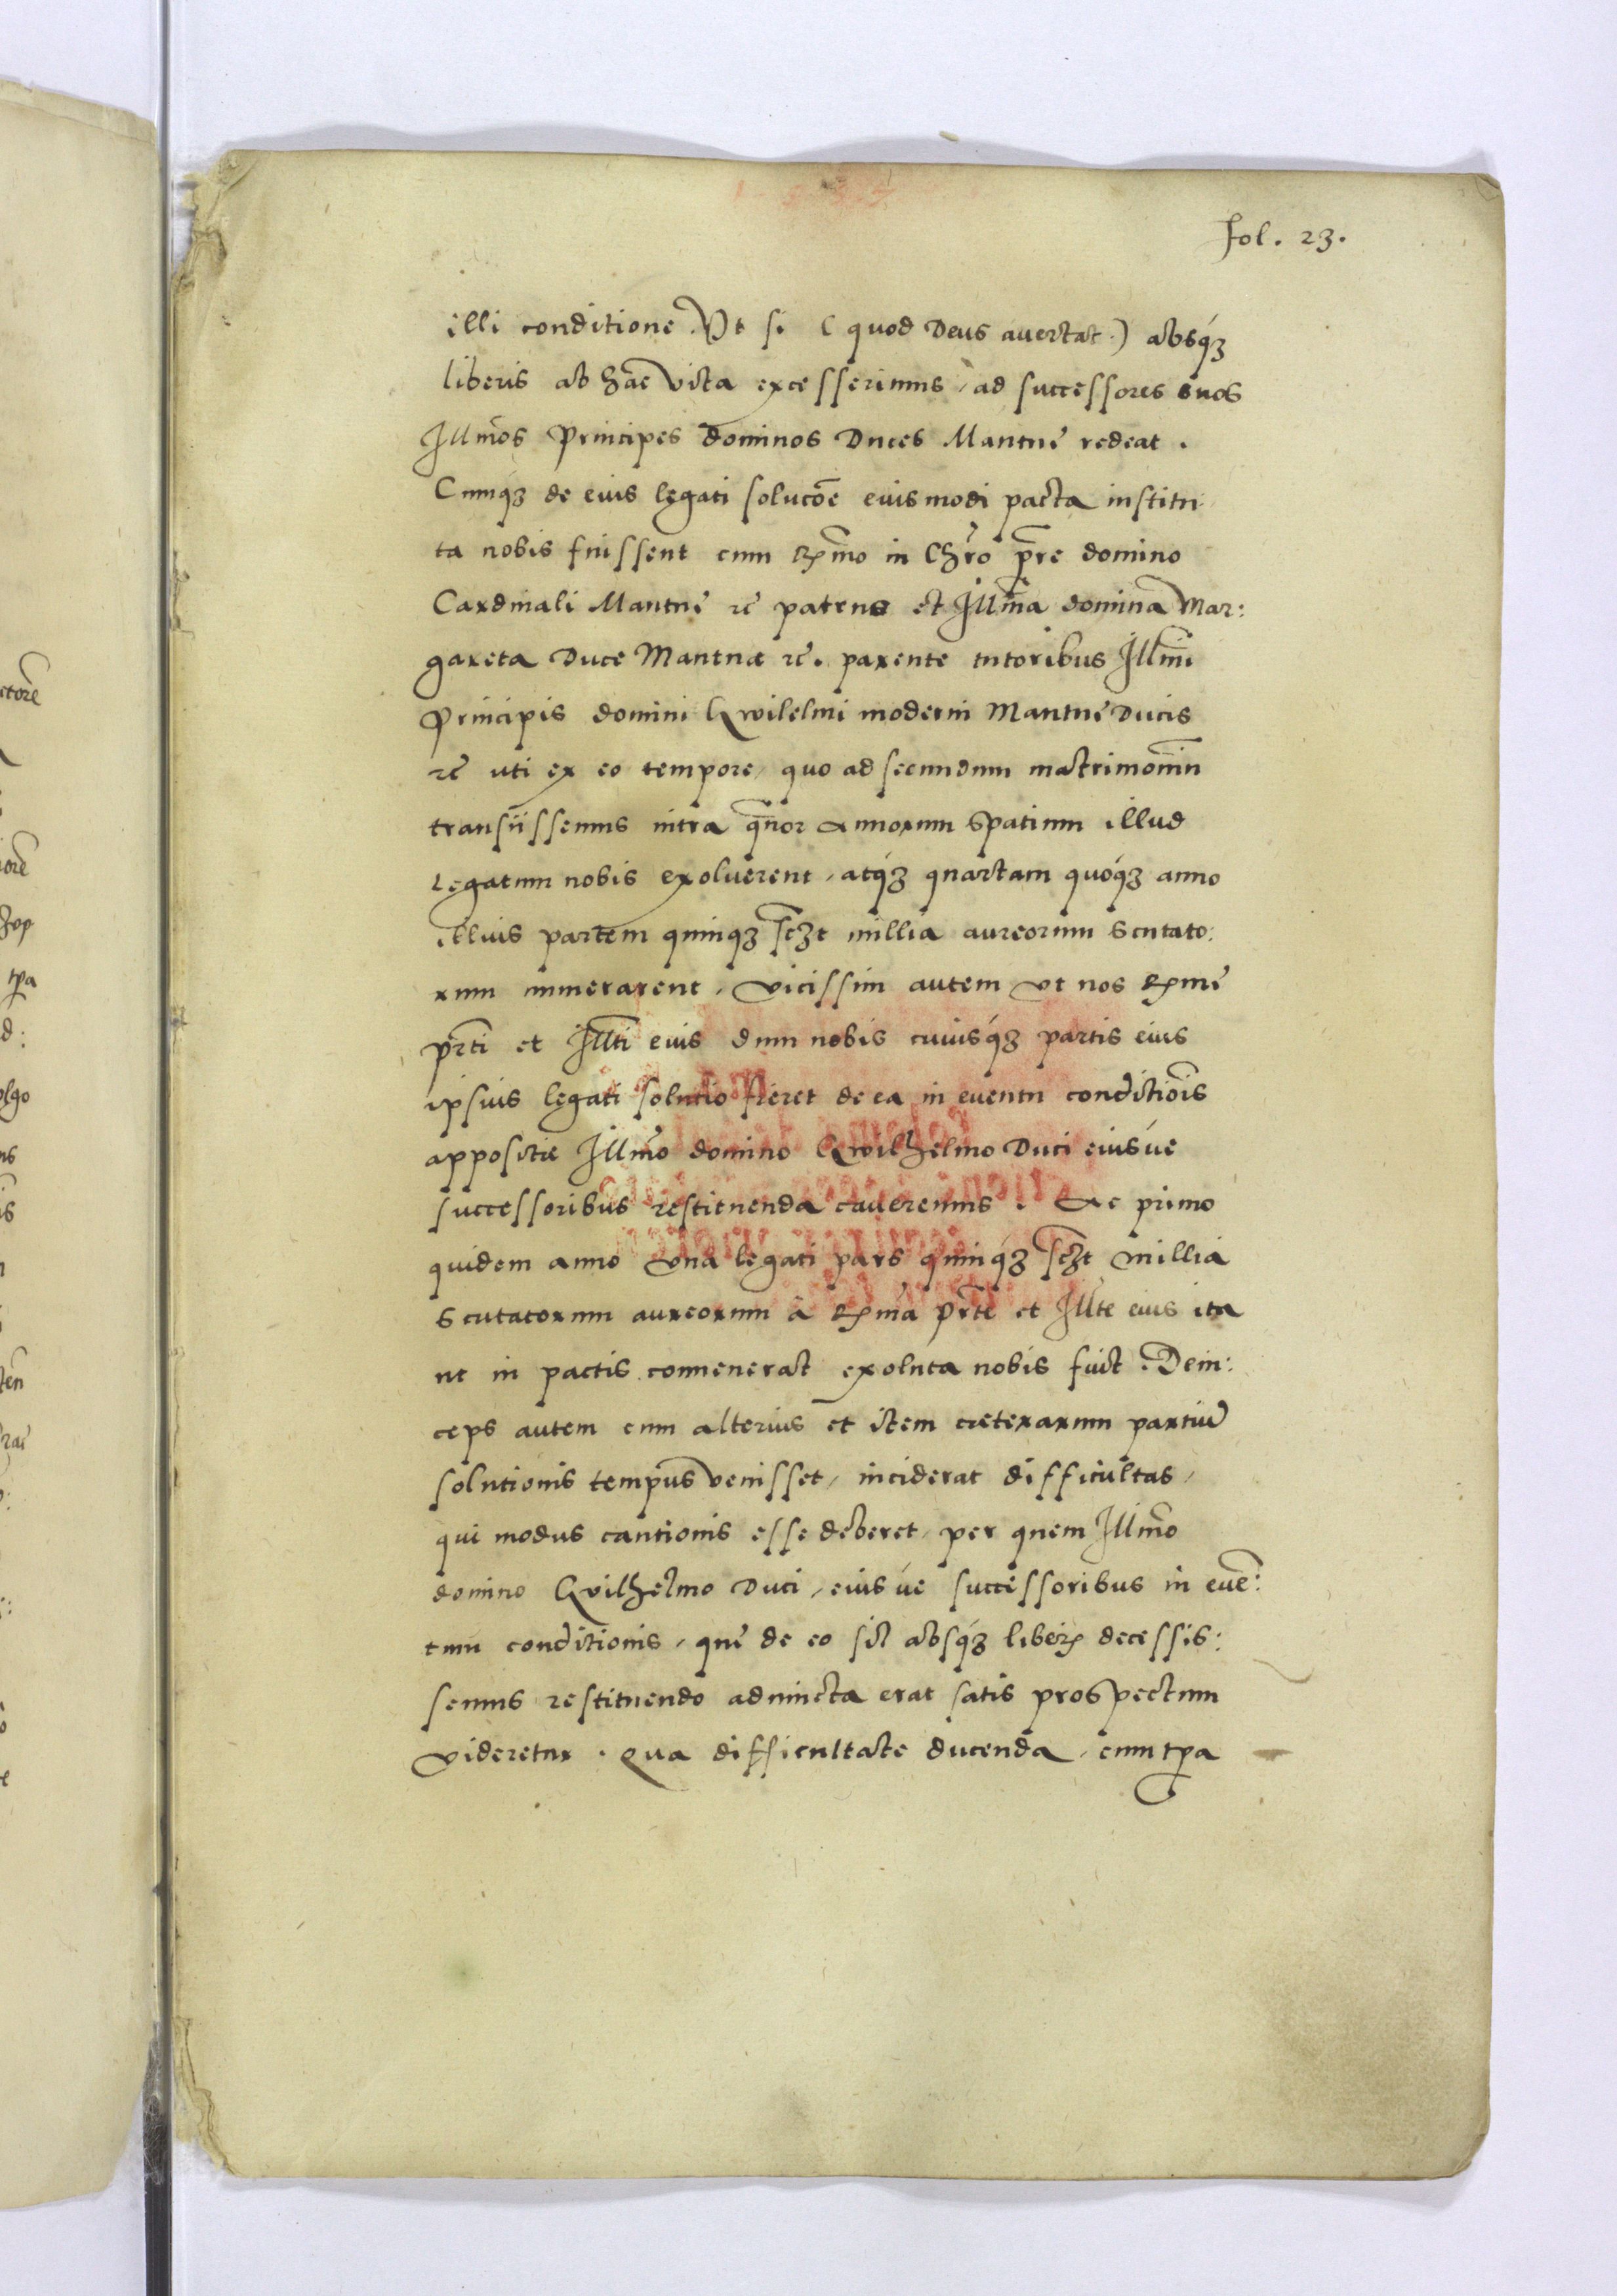 fol. 23.
illi conditione. Vt si ( quod Deus auertat.) absq́ꝫ
liberis ab hac vita excesserimus, ad successores suos
Illm̃os Principes dominos Duces Mantuę redeat.
Cumq́ꝫ de eius legati solucõe eiusmodi pacta institu
ta nobis fuissent cum Rm̃o in Chr̃o pr̃e domino
Cardinali Mantuę rc̃ patruo et Illm̃a domina Mar:
gareta Duce Mantuæ rc̃. parente tutoribus Illm̃i
Principis domini Gwilelmi moderni Mantuę Ducis
rc̃ vti ex eo tempore, quo ad secundum matrimoniũ
transijssemus intra qũor annorum spatium illud
legatum nobis exoluerent, atq́ꝫ quartam quoq́ꝫ anno
illius partem quinqꝫ sczt millia aureorum scutato:
rum numerarent, vicissim autem vt nos Rmę
pr̃ti et Illt̃i eius dum nobis cuiusq́ꝫ partis eius
ipsius legati solutio fieret de ea in euentu conditiõis
appositæ Illm̃o domino Gwilhelmo Duci eiusúe
successoribus restituenda caueremus. Ac primo
quidem anno vna legati pars quinq́ꝫ sczt millia
scutatorum aureorum à Rm̃a pr̃te et Illt̃e eius ita
ut in pactis conuenerat exoluta nobis fuit. Dein:
ceps autem cum alterius et item cæterarum partiũ
solutionis tempus venisset, inciderat difficultas,
qui modus cautionis esse deberet, per quem Illm̃o
domino Gvilhelmo Duci, eiusúe successoribus in euẽ:
tum conditionis, quę de eo sic̃ absq́ꝫ liberis decessis:
semus restituendo adiuncta erat satis prospectum
videretur. Qua difficultate ducenda, cum tp̃a